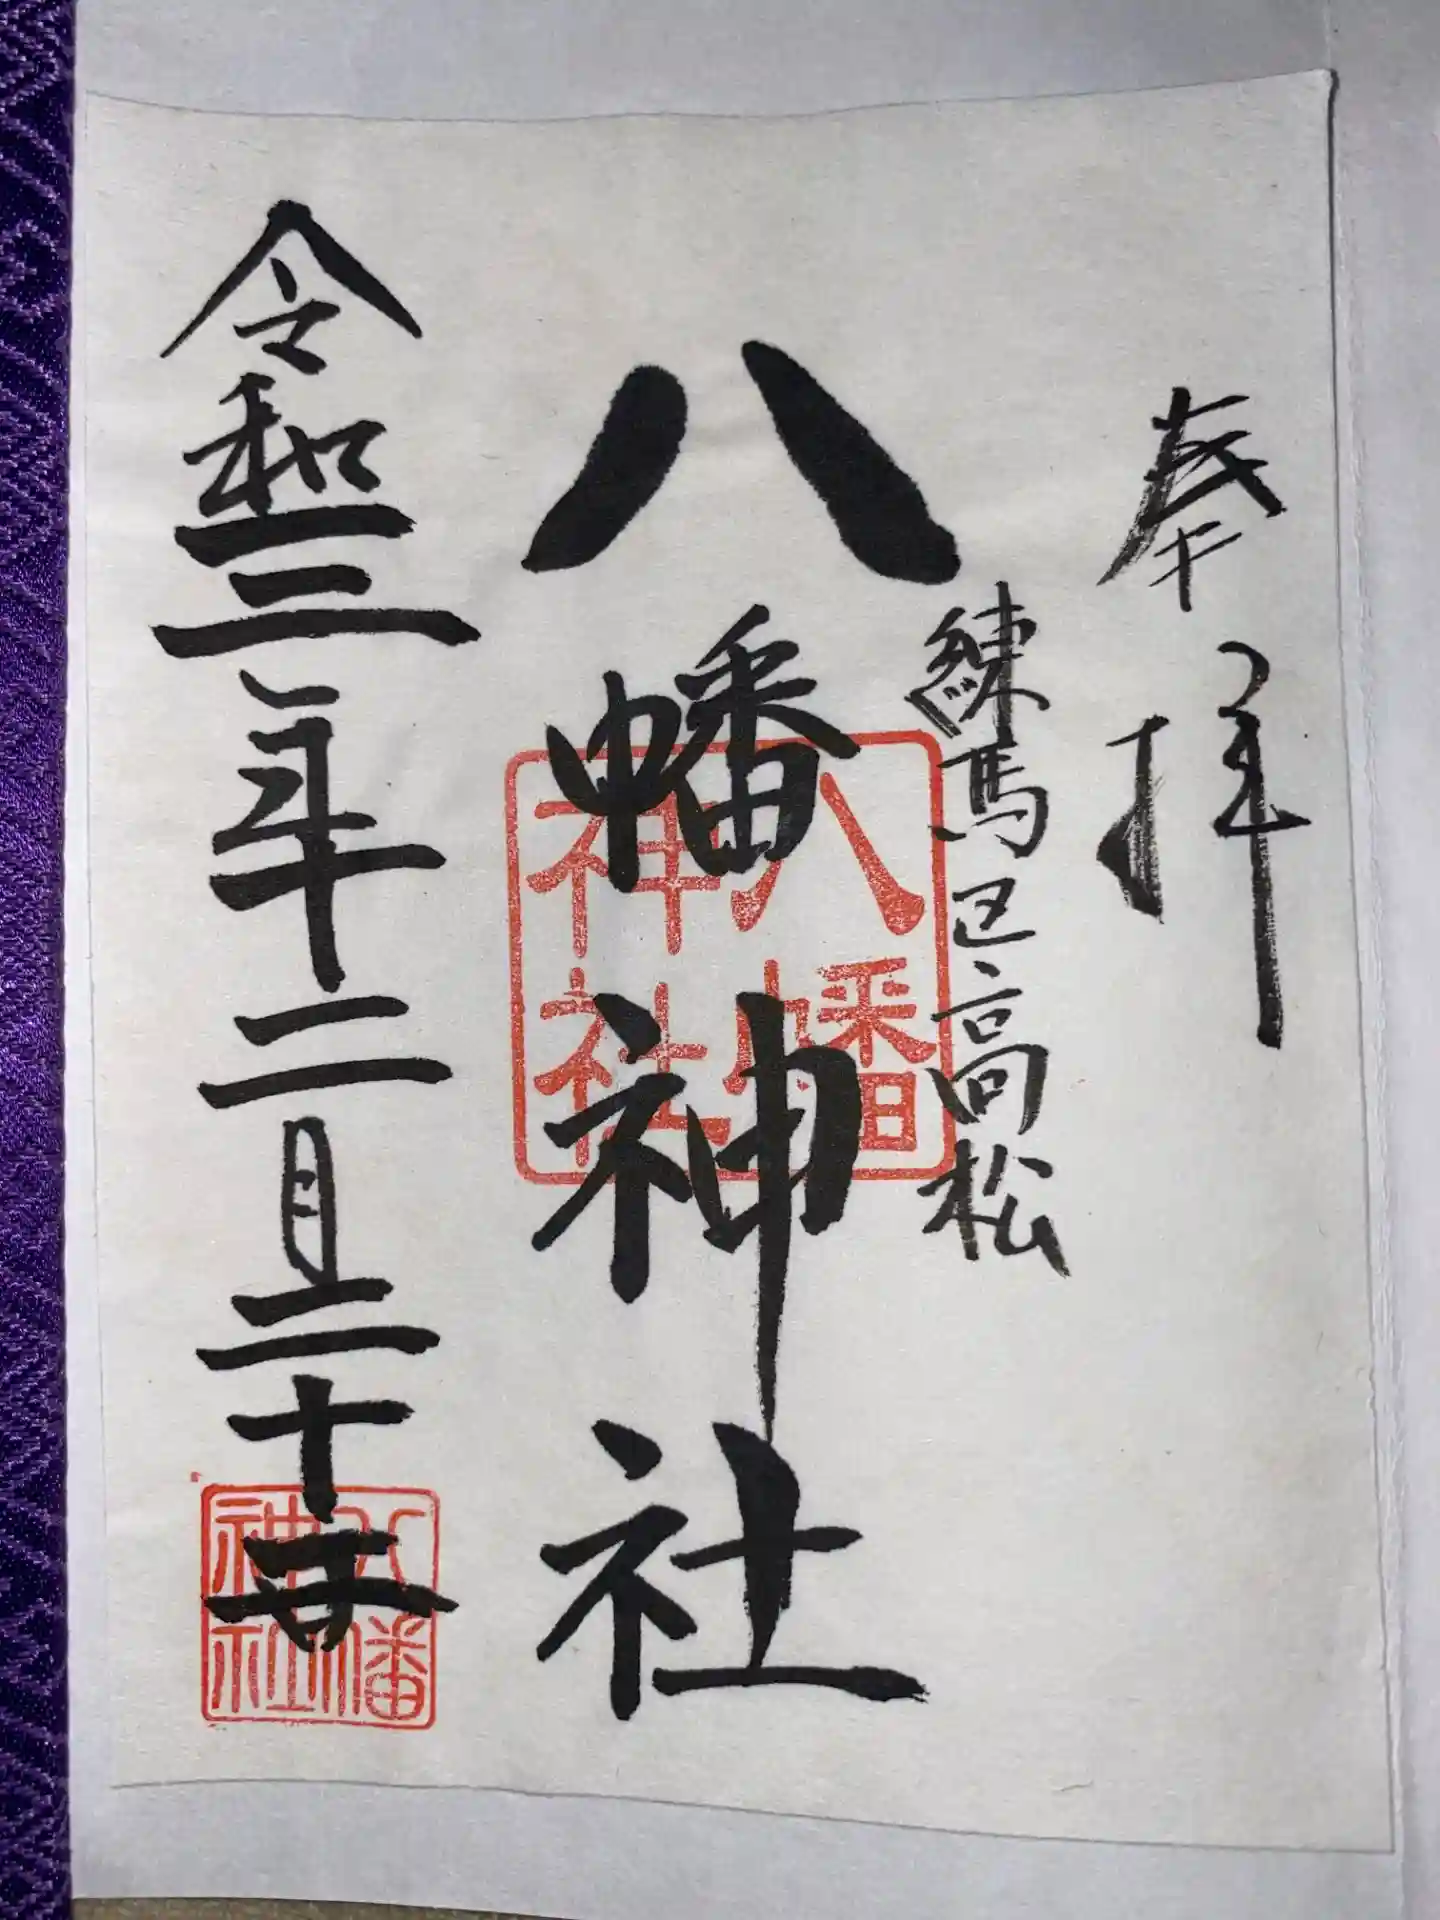 奉拝
練馬区高松
八幡神社
八幡神社
令和三年二月二十三日
八幡神社